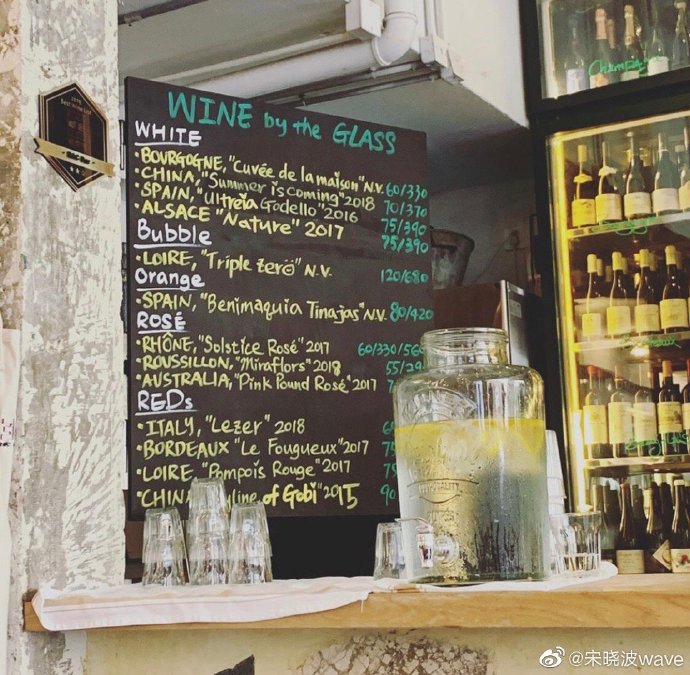 WINE by the GLASS
WHITE
• BOURGOGNE, "Cuvée de la maison" N.V. 60/330
• CHINA, "Summer is coming" 2018 70/370
• SPAIN, "Ultreia Godello" 2016 75/390
• ALSACE "Nature" 2017 75/390
Bubble
• LOIRE, "Triple Zerö" N.V. 120/680
Orange
• SPAIN, "Benimaquia Tinajas" N.V. 80/420
ROSÉ
• RHÔNE, "Solstice Rosé" 2017 60/330/560
• ROUSSILLON, "Miraflors" 2018 55/
• AUSTRALIA, "Pink Pound Rosé" 2017
REDs
• ITALY, "Lezer" 2018
• BORDEAUX "Le Fougueux" 2017
• LOIRE, "Pompois Rouge" 2017
• CHINA of Gobi" 2015 90
@宋晓波wave